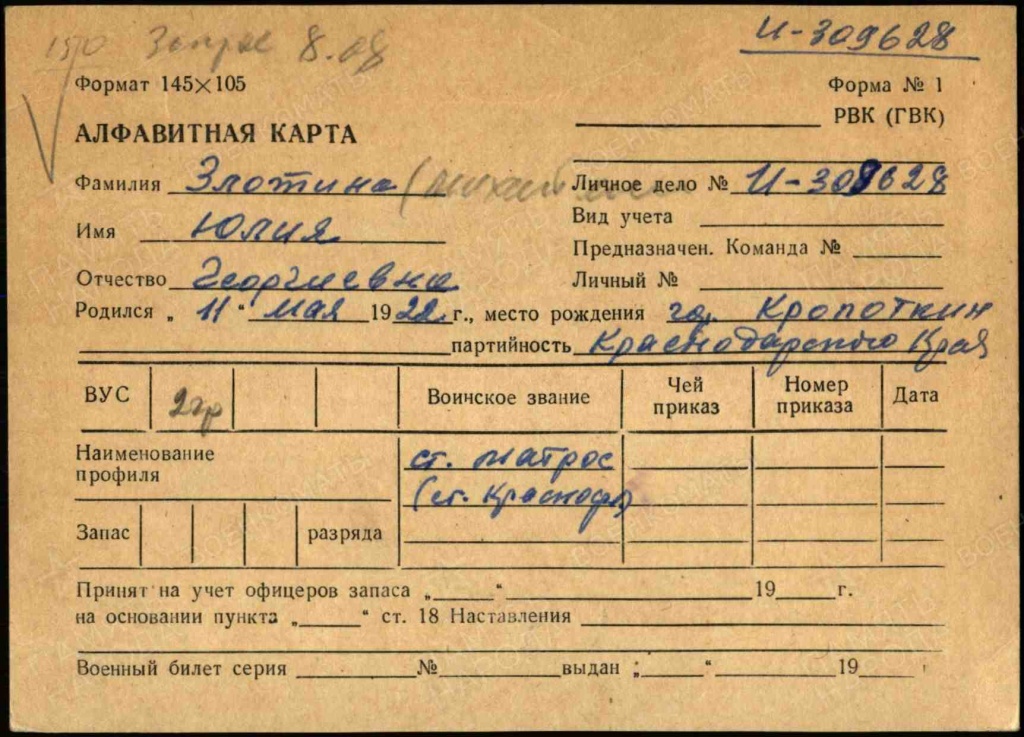 1570 Запрос 8.08
И-309628
Формат 145×105
Форма № 1
РВК (ГВК)
АЛФАВИТНАЯ КАРТА
Фамилия Злотина
Личное дело № И-309628
Имя Юлия
Вид учета
Предназначен. Команда №
Отчество Георгиевна
Личный №
Родился „ 11 “ мая 1922 г., место рождения гор. Кропоткин
партийность Краснодарского Края
ВУС 2гр Воинское звание Чей приказ Номер приказа Дата
Наименование профиля
ст. матрос
(ст. Краснофл)
Запас разряда
Принят на учет офицеров запаса „ “ 19 г.
на основании пункта „ “ ст. 18 Наставления
Военный билет серия № выдан „ “ 19